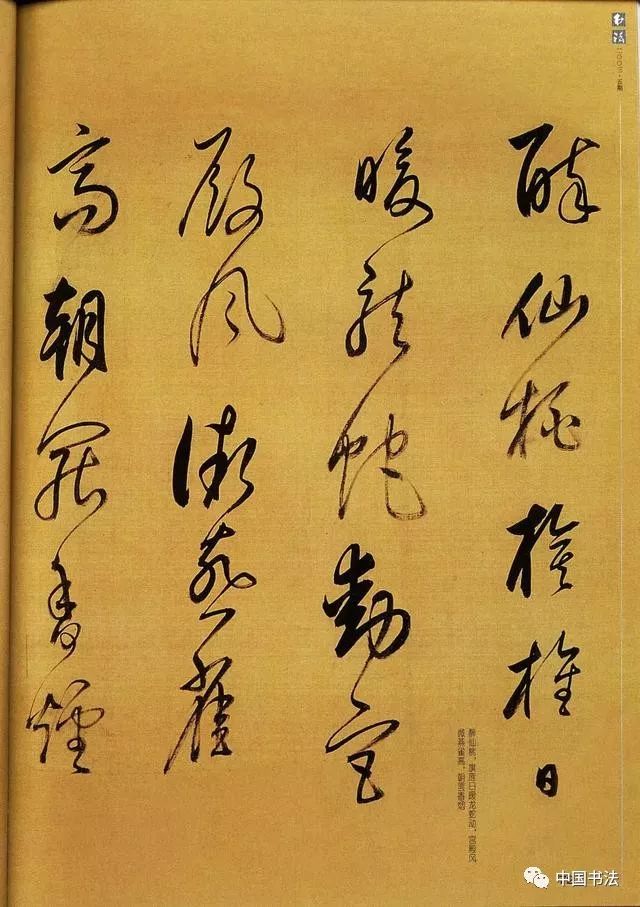 书法
二〇〇三·五期
醉仙桃旗旌日
暖龍蛇動宮
殿風微燕雀
高朝罷香煙
醉仙桃，旗旌日暖龙蛇动，宫殿风
微燕雀高，朝罢香烟
中国书法